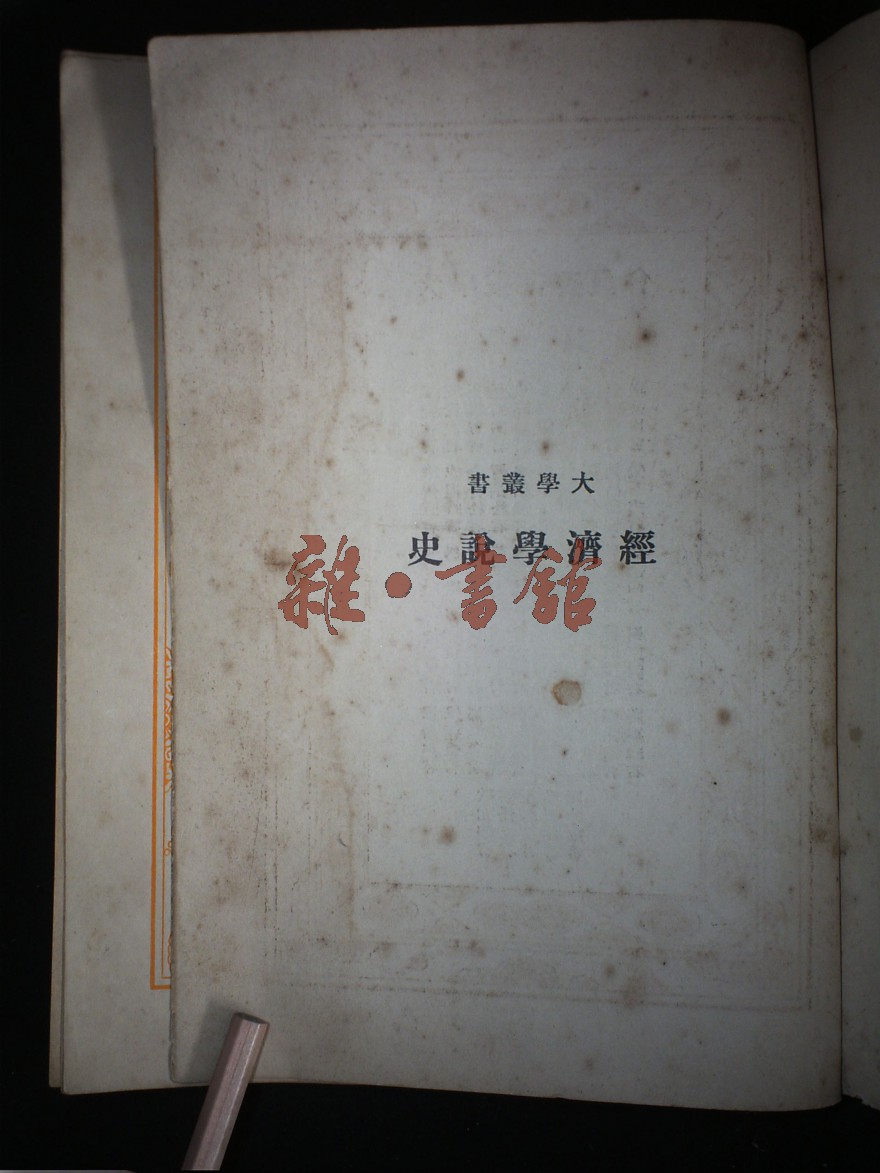 大學叢書
經濟學說史
雜●書館